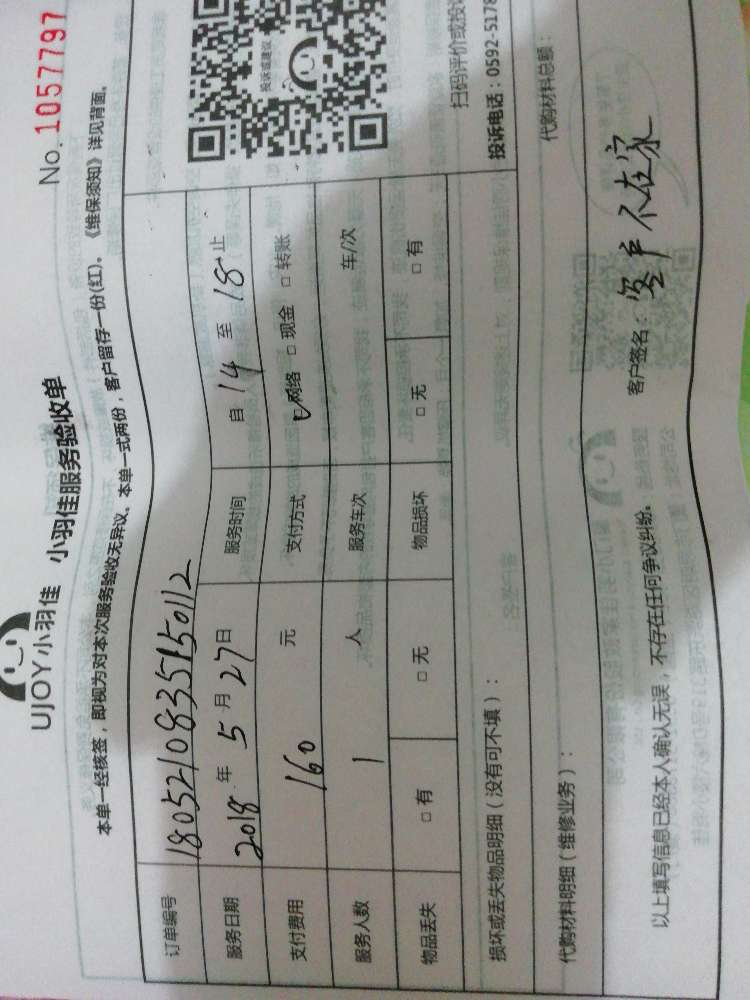 No. 1057797
UJOY小羽佳 小羽佳服务验收单
本单一经核签，即视为对本次服务验收无异议。本单一式两份，客户留存一份(红)。《维保须知》详见背面。
订单编号 180521083515150112
服务日期 2018 年 5 月 27 日 服务时间 自 14 至 18 止
支付费用 160 元 支付方式 ☑网络 □现金 □转账
服务人数 1 人 服务车次 车/次
物品丢失 □有 □无 物品损坏 □无 □有
投诉或建议
扫码评价或投诉
投诉电话：0592-5178
损坏或丢失物品明细（没有可不填）：
代购材料明细（维修业务）： 代购材料总额：
以上填写信息已经本人确认无误，不存在任何争议纠纷。 客户签名：客户不在家